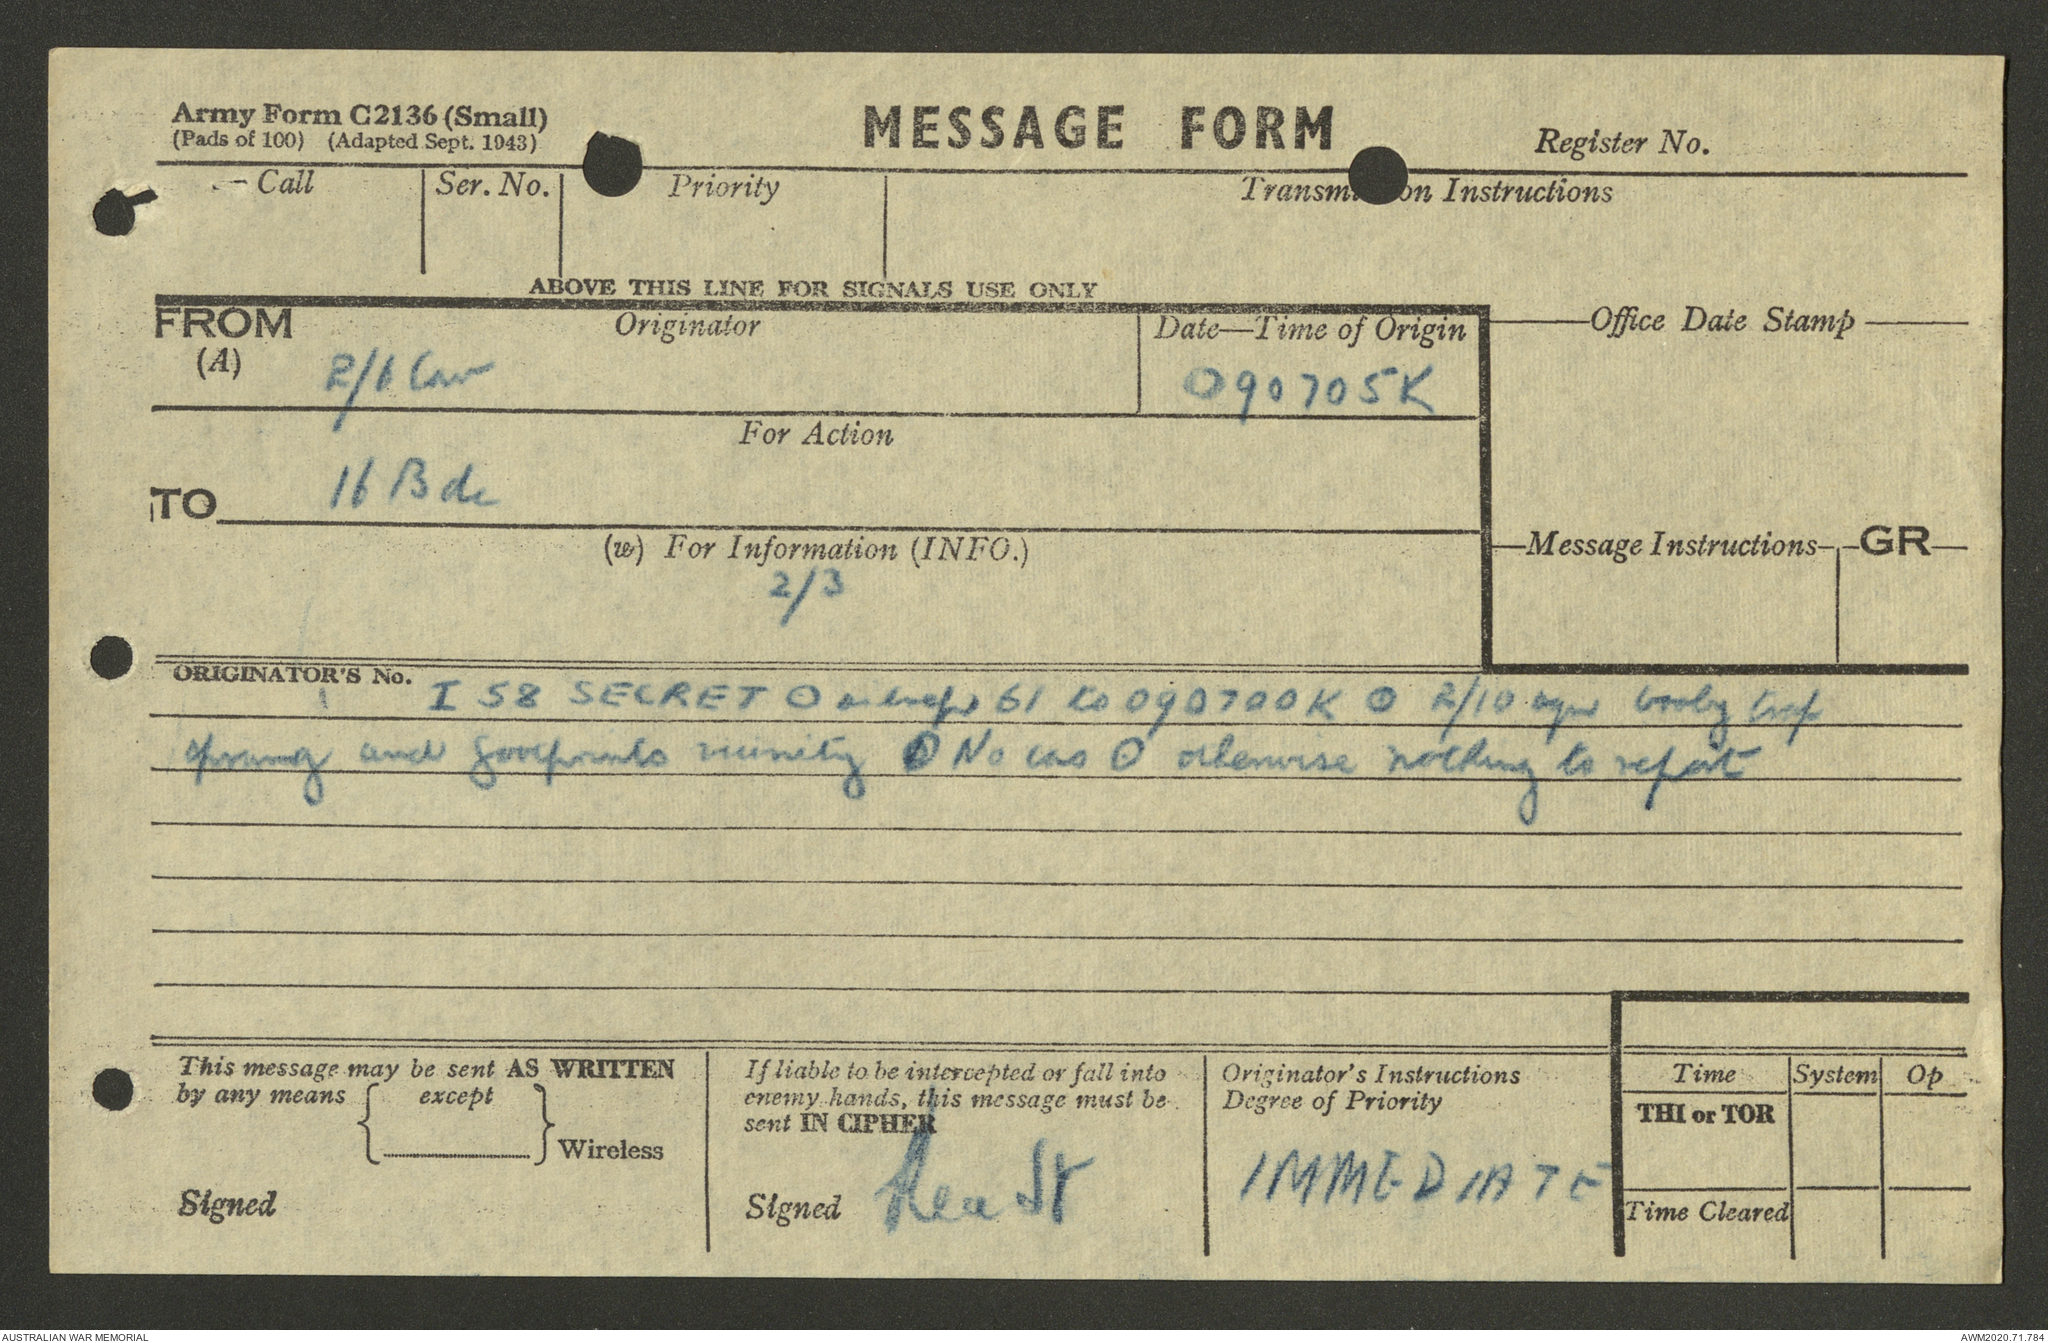 Army Form C2136 (Small)
(Pads of 100) (Adapted Sept. 1943)
MESSAGE FORM
Register No.
Call
Ser. No.
Priority
Transm on Instructions
ABOVE THIS LINE FOR SIGNALS USE ONLY
FROM
(A)
Originator
2/6 Cav
Date—Time of Origin
090705K
Office Date Stamp
For Action
TO
16 Bde
(w) For Information (INFO.)
2/3
Message Instructions
GR
ORIGINATOR'S No.
I 58 SECRET O 61 to 090700K O 2/10 booby trap
sprung and footprints vicinity O No cas O otherwise nothing to report
This message may be sent AS WRITTEN
by any means except
Wireless
Signed
If liable to be intercepted or fall into
enemy hands, this message must be
sent IN CIPHER
Signed
Originator's Instructions
Degree of Priority
IMMEDIATE
Time
System
Op
THI or TOR
Time Cleared
AUSTRALIAN WAR MEMORIAL
AWM2020.71.784